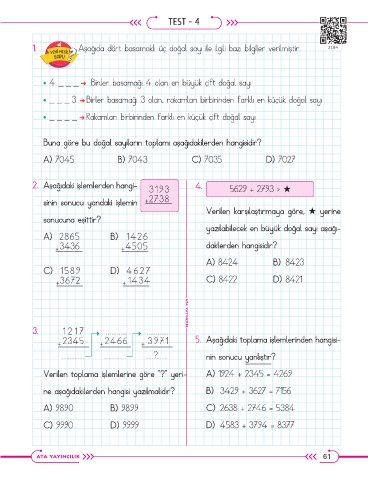 TEST - 4
1. Aşağıda dört basamaklı üç doğal sayı ile ilgili bazı bilgiler verilmiştir.
• 4 _ _ _ → Binler basamağı 4 olan en büyük çift doğal sayı
• _ _ _ 3 → Birler basamağı 3 olan, rakamları birbirinden farklı en küçük doğal sayı
• _ _ _ _ → Rakamları birbirinden farklı en küçük çift doğal sayı
Buna göre bu doğal sayıların toplamı aşağıdakilerden hangisidir?
A) 7045 B) 7043 C) 7035 D) 7027
2. Aşağıdaki işlemlerden hangi-
sinin sonucu yandaki işlemin
sonucuna eşittir?
3193
+2738
A) 2865 B) 1426
+3436 +4505
C) 1589 D) 4627
+3672 +1434
3. 1217
+2345 +2466 +3971
?
Verilen toplama işlemlerine göre "?" yeri-
ne aşağıdakilerden hangisi yazılmalıdır?
A) 9890 B) 9899
C) 9990 D) 9999
4. 5629 + 2793 > ★
Verilen karşılaştırmaya göre, ★ yerine
yazılabilecek en büyük doğal sayı aşağı-
dakilerden hangisidir?
A) 8424 B) 8423
C) 8422 D) 8421
5. Aşağıdaki toplama işlemlerinden hangisi-
nin sonucu yanlıştır?
A) 1924 + 2345 = 4269
B) 3429 + 3627 = 7156
C) 2638 + 2746 = 5384
D) 4583 + 3794 = 8377
ATA YAYINCILIK
61